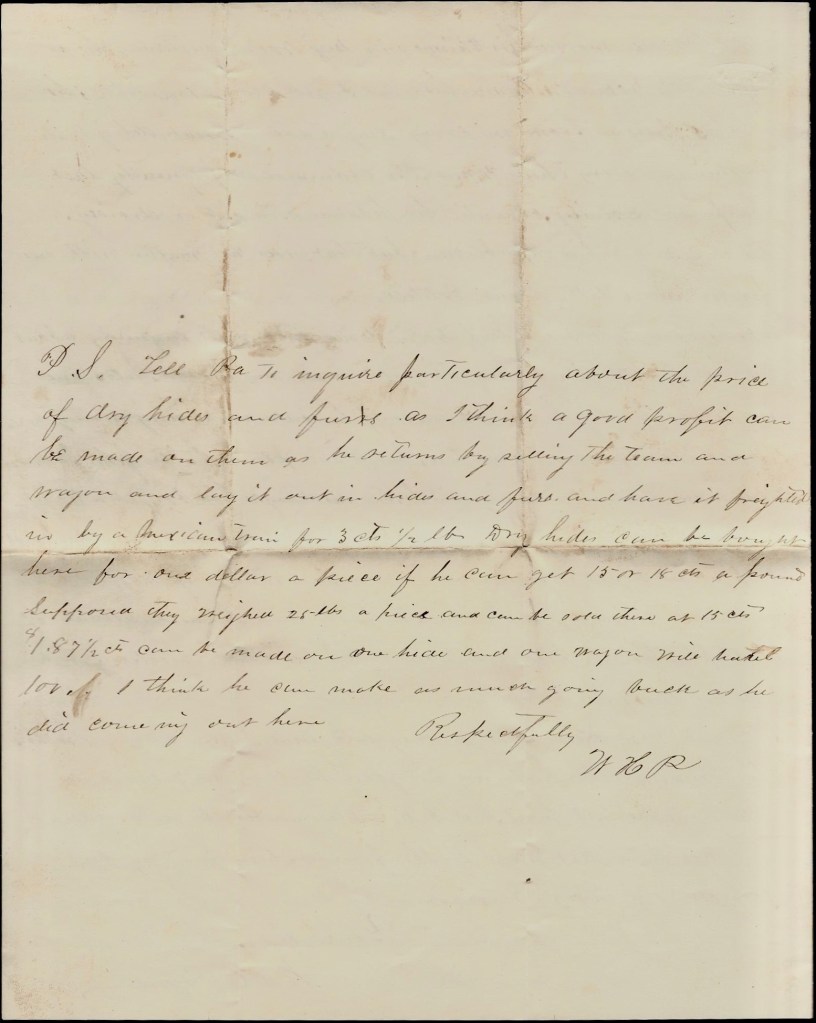 P S. Tell Pa to inquire particularly about the price
of dry hides and furs as I think a good profit can
be made on them as he returns by selling the team and
wagon and lay it out in hides and furs and have it freighted
in by a Mexican train for 3 cts 1/2 lb Dry hides can be bought
here for one dollar a piece if he can get 15 or 18 cts a pound
Supposed they weighed 25 lbs a piece and can be sold there at 15 cts
$1.87 1/2 cts can be made on one hide and one wagon will
100 I think he can make as much going back as he
did comeing out here
Respectfully
W H R